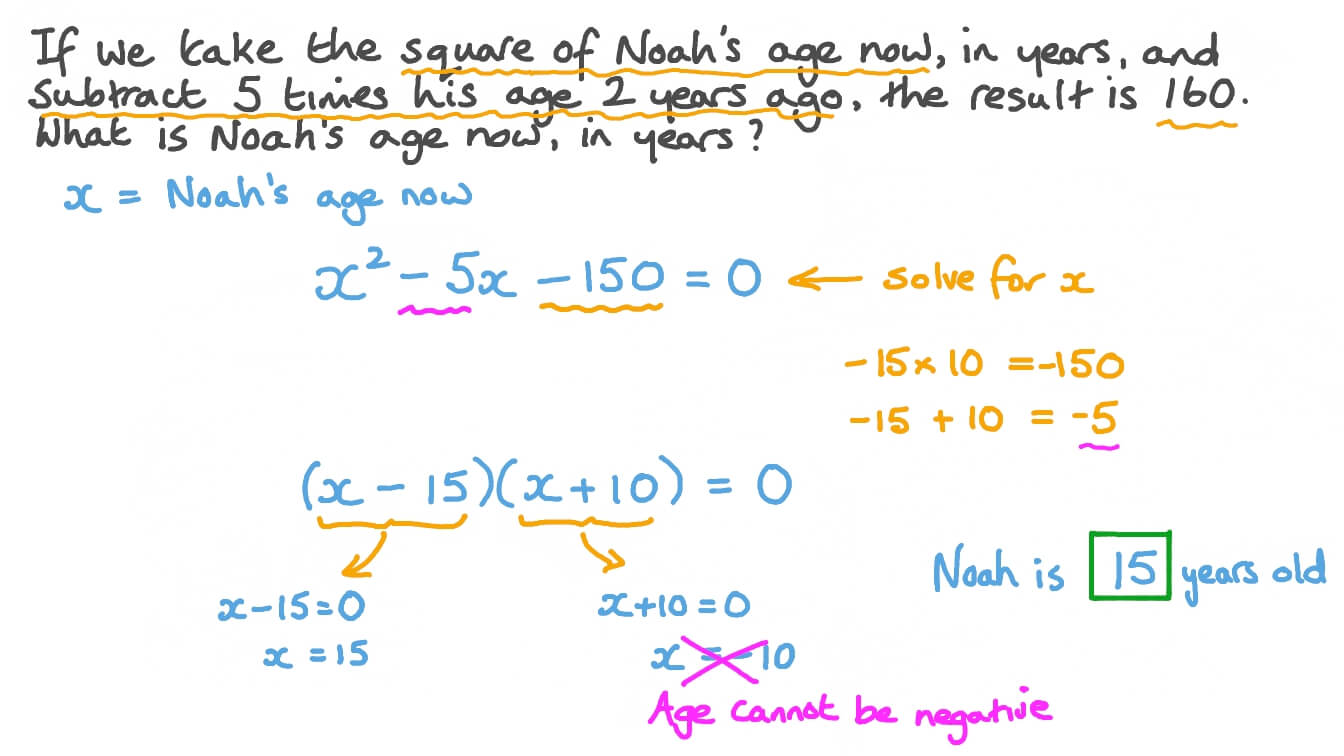 If we take the square of Noah's age now, in years, and
subtract 5 times his age 2 years ago, the result is 160.
What is Noah's age now, in years?
x = Noah's age now
x² - 5x - 150 = 0 ← solve for x
-15 × 10 = -150
-15 + 10 = -5
(x - 15)(x + 10) = 0
Noah is 15 years old
x - 15 = 0 x + 10 = 0
x = 15 x = -10
Age cannot be negative